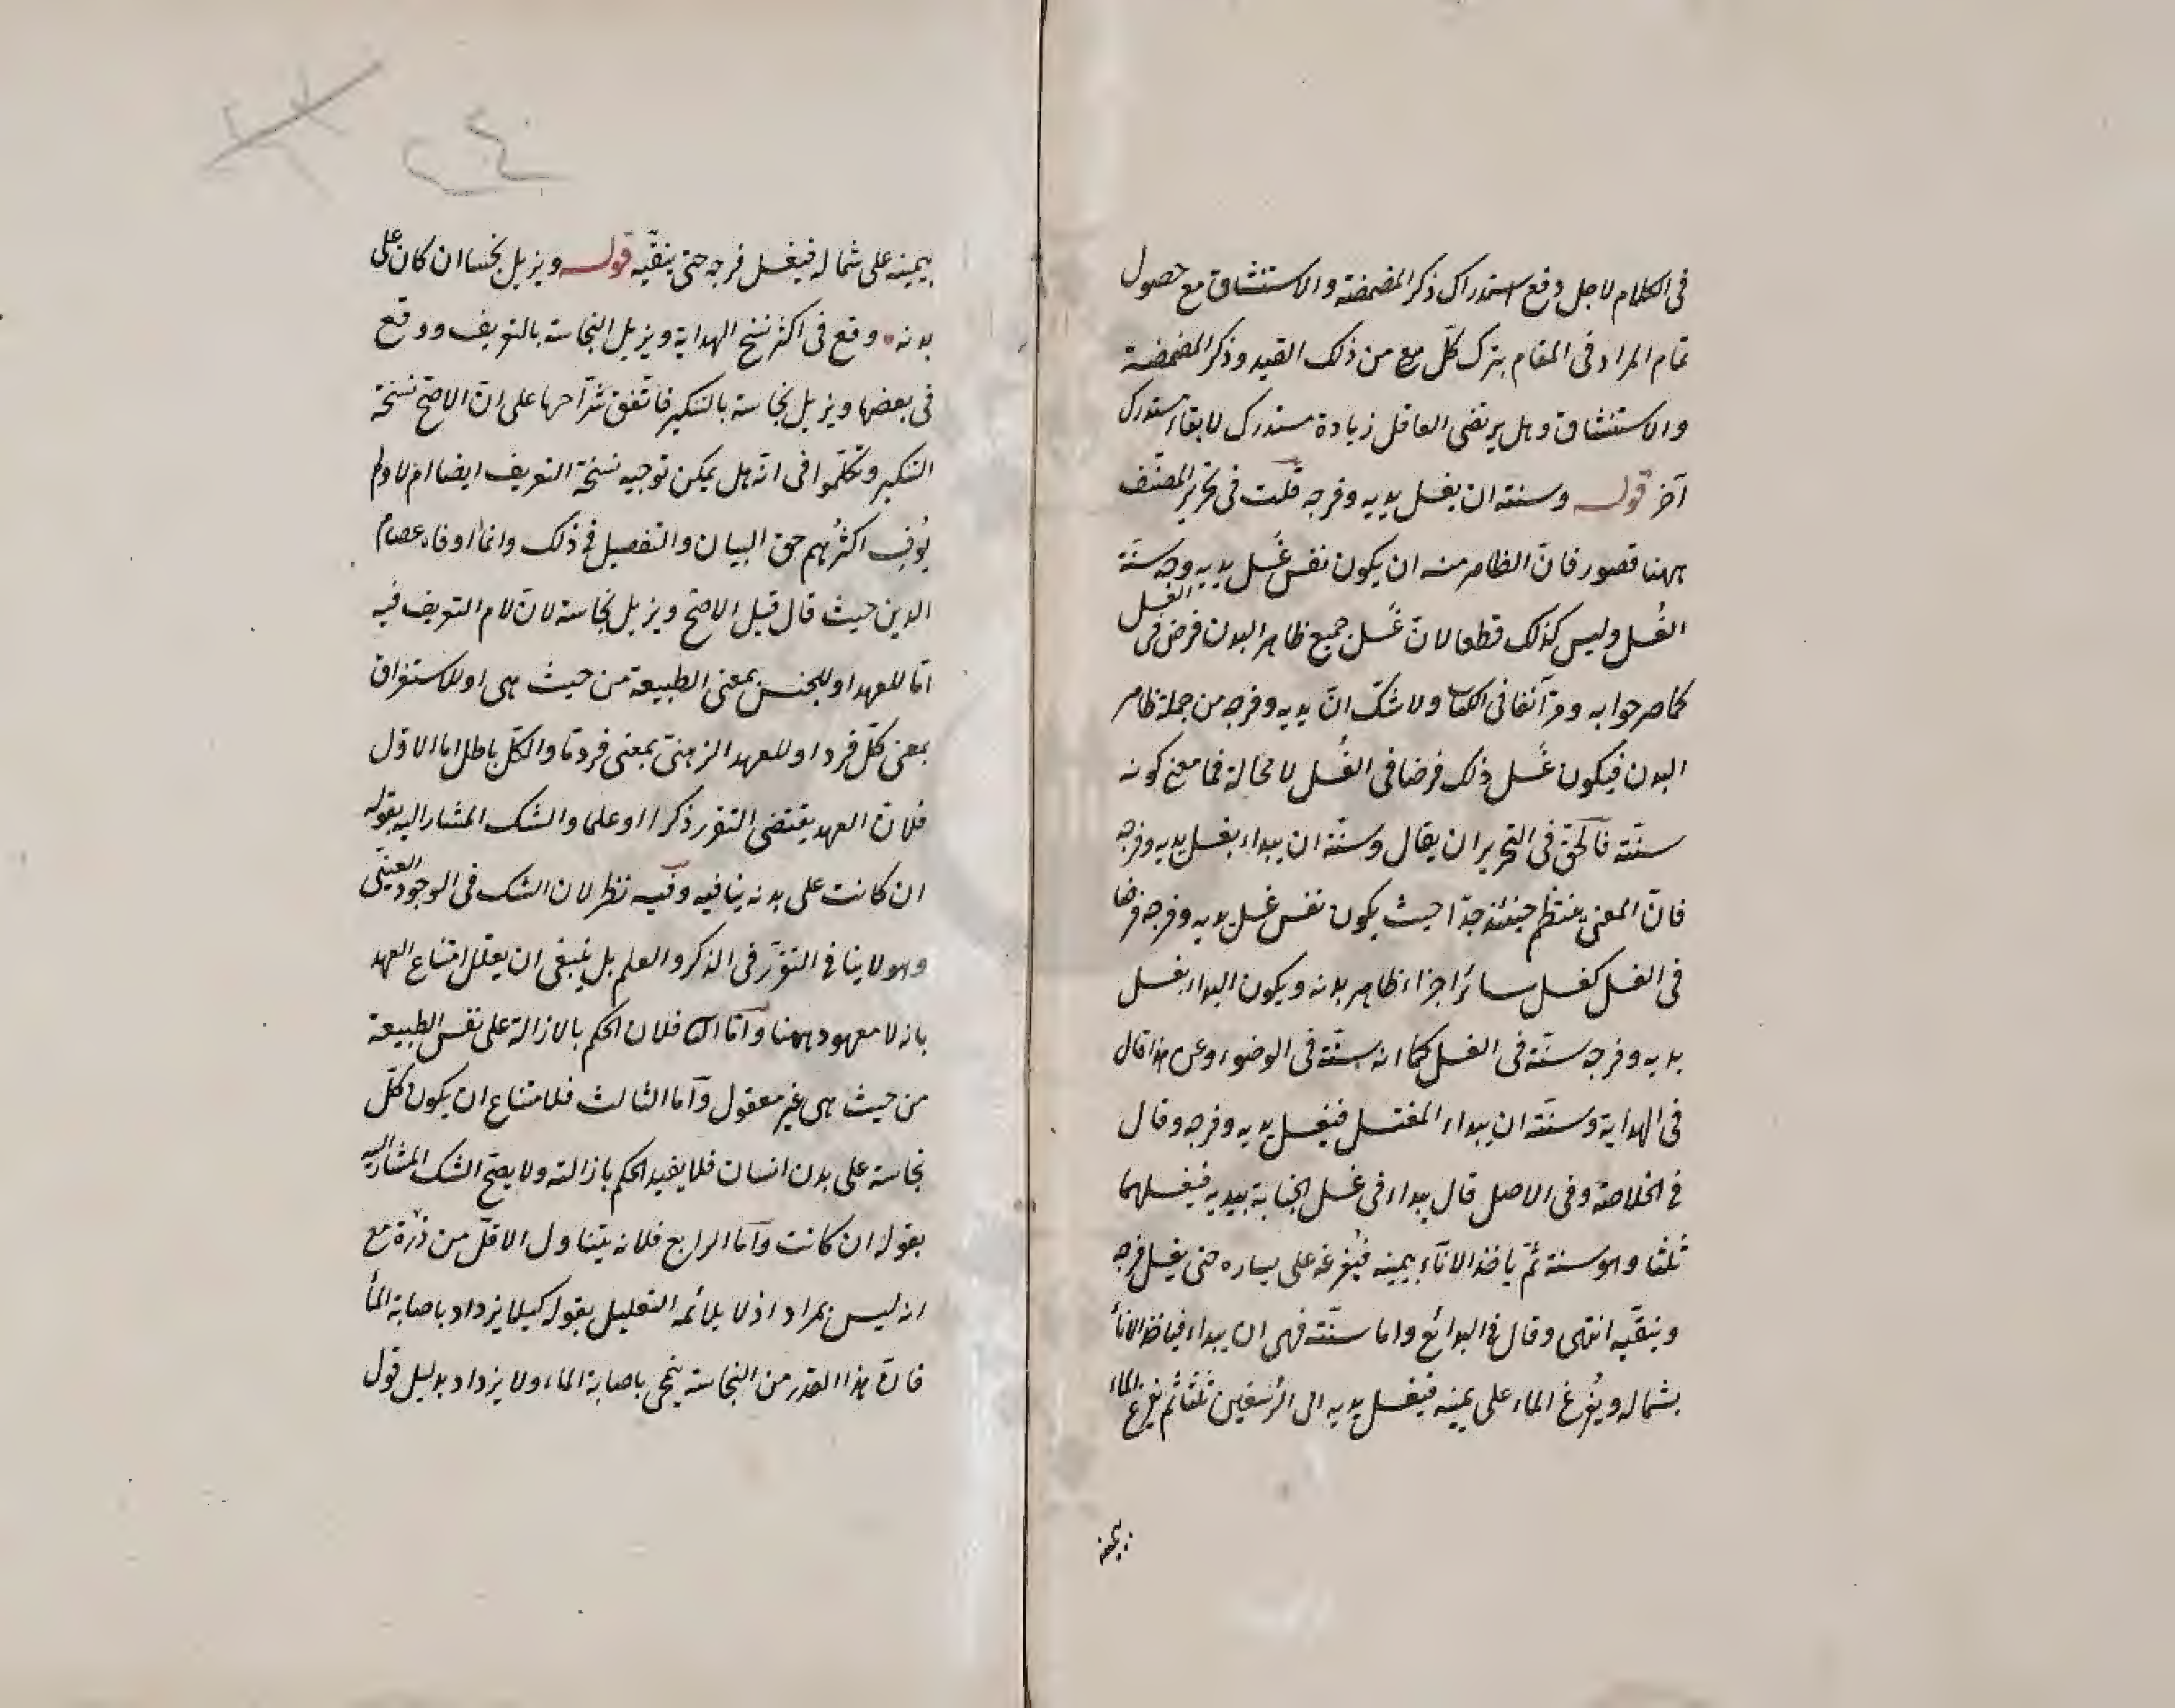 فى الكلام لاجل دفع استدراك ذكر المضمضة والاستنشاق مع حصول
تمام المراد فى المقام بترك كلّ مع من ذلك القيد وذكر المضمضة
والاستنشاق وهل يرتضى العاقل زيادة مستدرك لابقاء مستدرك
آخر قوله وسنته ان يغسل يديه وفرجه قلت فى تحرير المصنّف
ههنا قصور فانّ الظاهر منه ان يكون نفس غَسل يديه وفرجه سنّة
الغُسل وليس كذلك قطعا لانّ غَسل جميع ظاهر البدن فرض فى الغسل
كما صرحوا به ومرّ آنفا فى الكتاب ولا شكّ انّ يديه وفرجه من جملة ظاهر
البدن فيكون غَسل ذلك فرضا فى الغُسل لا محالة فما معنى كونه
سنّته فالحقّ فى التحرير ان يقال وسنّته ان يبداء بغسل يديه وفرجه
فانّ المعنى ينتظم حينئذ جدّا حيث يكون نفس غسل يديه وفرجه فرضا
فى الغسل كغسل سائر اجزاء ظاهر بدنه ويكون البداء بغسل
يديه وفرجه سنّة فى الغسل كما انه سنّة فى الوضوء وعن هذا قال
فى الهداية وسنّته ان يبداء المغتسل فيغسل يديه وفرجه وقال
فى الخلاصة وفى الاصل قال يبداء فى غسل الجنابة بيديه فيغسلهما
ثلثا وهو سنة ثمّ ياخذ الاناء بيمينه فيُفرغه على يساره حتى يغسل فرجه
وينقّيه انتهى وقال فى البدائع واما سنّته فهى ان يبداء فياخذ الاناء
بشماله ويُفرغ الماء على يمينه فيغسل يديه الى الرسغين ثلثا ثم يفرغ الماء
بيمينه
بيمينه على شماله فيغسل فرجه حتى ينقّيه قوله ويزيل نجسا ان كان على
بدنه وقع فى اكثر نسخ الهداية ويزيل النجاسة بالتعريف ووقع
فى بعضها ويزيل نجاسة بالتنكير فاتّفق شرّاحها على انّ الاصحّ نسخة
التنكير وتكلّموا فى انّه هل يمكن توجيه نسخة التعريف ايضا ام لا ولم
يُوفِ اكثرُهم حق البيان والتفصيل فى ذلك وانما اوفاه عصام
الدين حيث قال قيل الاصحّ ويزيل نجاسة لانّ لام التعريف فيه
امّا للعهد او للجنس بمعنى الطبيعة من حيث هى او للاستغراق
بمعنى كلّ فرد او للعهد الذهنىّ بمعنى فرد مّا والكلّ باطل اما الاوّل
فلانّ العهد يقتضى التقرر ذكرا او علما والشك المشار اليه بقوله
ان كانت على بدنه ينافيه وفيه نظر لان الشك فى الوجود العينىّ
وهو لا ينافى التقرّر فى الذكر والعلم بل ينبغى ان يعلل امتناع العهد
بانه لا معهود ههنا وامّا الثانى فلان الحكم بالازالة على نفس الطبيعة
من حيث هى غير معقول وامّا الثالث فلامتناع ان يكون كلّ
نجاسة على بدن انسان فلا يفيد الحكم بازالته ولا يصحّ الشك المشار اليه
بقوله ان كانت وامّا الرابع فلانه يتناول الاقلّ من ذرّة مع
انه ليس بمراد اذ لا يلائمه التعليل بقوله كيلا يزداد باصابة الماء
فانّ هذا القدر من النجاسة ينحى باصابة الماء ولا يزداد بدليل قول